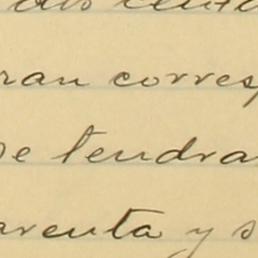 ran corresp
se tendra
arenta y s